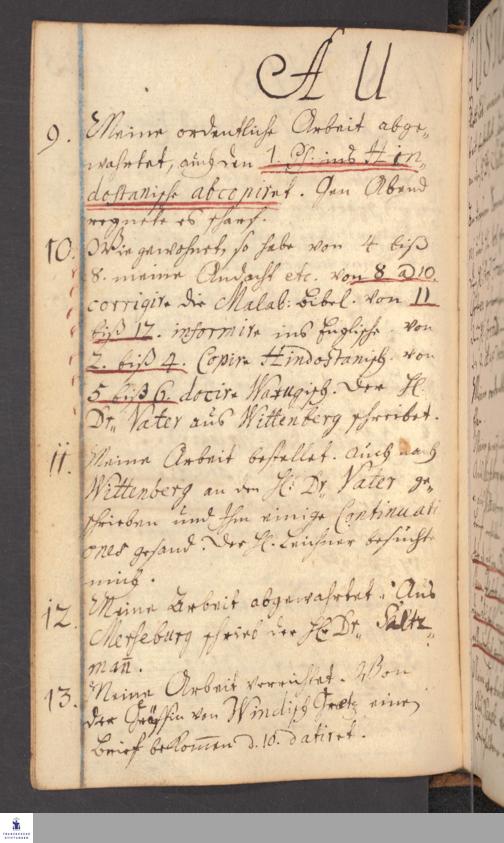 AU
9. Meine ordentliche Arbeit abge-
wahrtet, auch den 1. Ps: ins Hin-
dostanische abcopiret. Gen Abend
regnete es scharf.
10. Wie gewohnet, so habe von 4 biß
8. meine Andacht etc. von 8 a 10.
corrigire die Malab: Bibel. von 11
biß 12. informire ins Englische von
2. biß 4. Copire Hindostanisch. von
5 biß 6. docire Warugisch. Der H.
Dr. Vater aus Wittenberg schreibet.
11. Meine Arbeit bestellet. Auch nach
Wittenberg an den H: Dr. Vater ge-
schrieben und Ihm einige Continuati
ones gesand. Der H. Leichner besuchte
mich.
12. Meine Arbeit abgewahrtet. Aus
Merseburg schrieb der H. Dr. Saltz-
mañ.
13. Meine Arbeit verrichtet. Von
der Gräffin von Windisch Gretz einen
Brief bekom̄en d. 10. datiret.
FRANCKESCHE
STIFTUNGEN